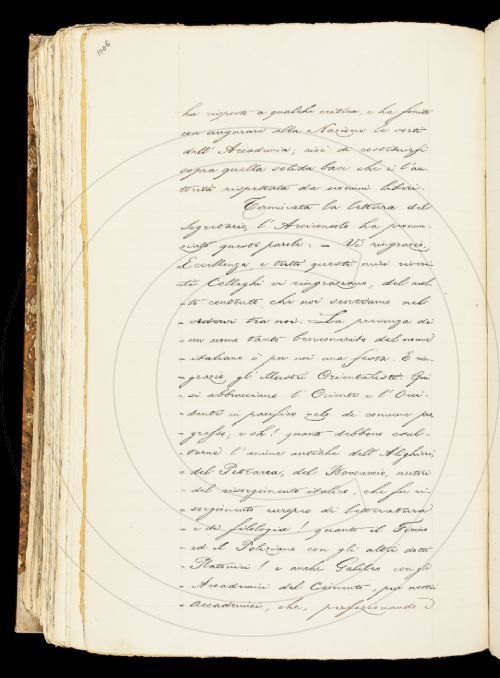 1006
ha risposto a qualche critica, e ha finito
con augurare alla Nazione le sorti
dell'Accademia; cioè di costituirsi
sopra quella solida base che è l'au-
torità rispettata da uomini liberi.
Terminata la lettura del
Segretario, l'Arciconsolo ha pronun-
ziato queste parole: = Vi ringrazio,
Eccellenza e tutti questi miei riveri-
ti Colleghi vi ringraziano, del mol-
- to contento che noi sentiamo nel
- vedervi tra noi. La presenza di
- un uomo tanto benemerito del nome
- italiano è per noi una festa. E rin-
- grazio gl'illustri Orientalisti. Qui
- si abbracciano l'Oriente e l'Occi-
- dente in pacifico zelo di comune pro
- gresso; e oh! quanto debbono esul-
- tarne l'anime antiche dell'Alighieri,
- del Petrarca, del Boccaccio, autori
- del risorgimento italico, che fu ri-
- sorgimento europeo di letteratura
- e di filologia! quanto il Ficino
- ed il Poliziano con gli altri dotti
- Platonici! e anche Galileo con gli
- Accademici del Cimento, pur nostri
- Accademici, che, perfezionando